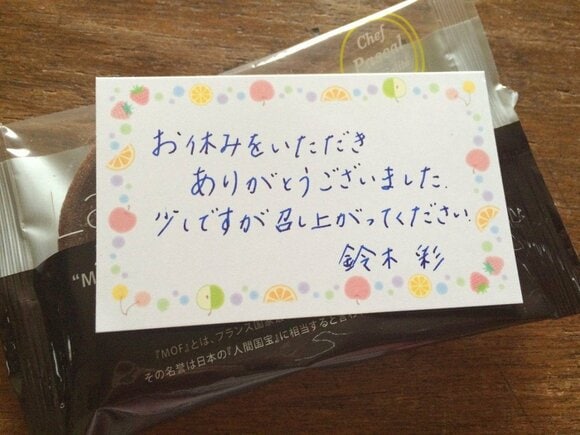 Chef
Pascal
お休みをいただき
ありがとうございました.
少しですが召し上がってください.
鈴木 彩
La
"M
『MOF』とは、フランス国
その名誉は日本の『人間国宝』に相当すると言